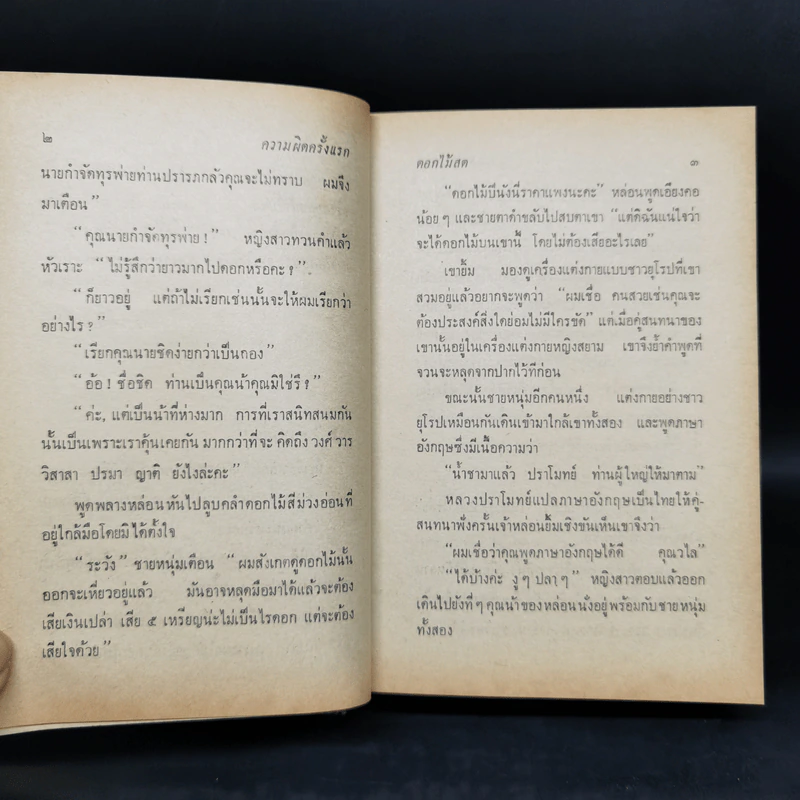 ๒
ความผิดครั้งแรก
นายกำจัดทุรพ่ายท่านปรารภกลัวคุณจะไม่ทราบ ผมจึง
มาเตือน”
“คุณนายกำจัดทุรพ่าย!” หญิงสาวทวนคำแล้ว
หัวเราะ “ไม่รู้สึกว่ายาวมากไปดอกหรือคะ?”
“ก็ยาวอยู่ แต่ถ้าไม่เรียกเช่นนั้นจะให้ผมเรียกว่า
อย่างไร?”
“เรียกคุณนายชิดง่ายกว่าเป็นกอง”
“อ้อ! ชื่อชิด ท่านเป็นคุณน้าคุณมิใช่รึ?”
“ค่ะ, แต่เป็นน้าที่ห่างมาก การที่เราสนิทสนมกัน
นั้นเป็นเพราะเราคุ้นเคยกัน มากกว่าที่จะ คิดถึง วงศ์ วาร
วิสาสา ปรมา ญาติ ยังไงล่ะคะ”
พูดพลางหล่อนหันไปลูบคลำดอกไม้สีม่วงอ่อนที่
อยู่ใกล้มือโดยมิได้ตั้งใจ
“ระวัง” ชายหนุ่มเตือน “ผมสังเกตดูดอกไม้นั้น
ออกจะเหี่ยวอยู่แล้ว มันอาจหลุดมือมาได้แล้วจะต้อง
เสียเงินเปล่า เสีย ๕ เหรียญน่ะไม่เป็นไรดอก แต่จะต้อง
เสียใจด้วย”
ดอกไม้สด
๓
“ดอกไม้ปีนังนี่ราคาแพงนะคะ” หล่อนพูดเอียงคอ
น้อยๆ และชายตาดำขลับไปสบตาเขา “แต่ดิฉันแน่ใจว่า
จะได้ดอกไม้บนเขานี้ โดยไม่ต้องเสียอะไรเลย”
เขายิ้ม มองดูเครื่องแต่งกายแบบชาวยุโรปที่เขา
สวมอยู่แล้วอยากจะพูดว่า “ผมเชื่อ คนสวยเช่นคุณจะ
ต้องประสงค์สิ่งใดย่อมไม่มีใครขัด” แต่เมื่อคู่สนทนาของ
เขานั้นอยู่ในเครื่องแต่งกายหญิงสยาม เขาจึงย้ำคำพูดที่
จวนจะหลุดจากปากไว้ทีก่อน
ขณะนั้นชายหนุ่มอีกคนหนึ่ง แต่งกายอย่างชาว
ยุโรปเหมือนกันเดินเข้ามาใกล้เขาทั้งสอง และพูดภาษา
อังกฤษซึ่งมีเนื้อความว่า
“น้ำชามาแล้ว ปราโมทย์ ท่านผู้ใหญ่ให้มาตาม”
หลวงปราโมทย์แปลภาษาอังกฤษเป็นไทยให้คู่-
สนทนาฟังครั้นเจ้าหล่อนยิ้มเชิงขันเห็นเขาจึงว่า
“ผมเชื่อว่าคุณพูดภาษาอังกฤษได้ดี คุณวไล”
“ได้บ้างค่ะ งูๆ ปลาๆ” หญิงสาวตอบแล้วออก
เดินไปยังที่ๆ คุณน้าของหล่อนนั่งอยู่พร้อมกับชายหนุ่ม
ทั้งสอง